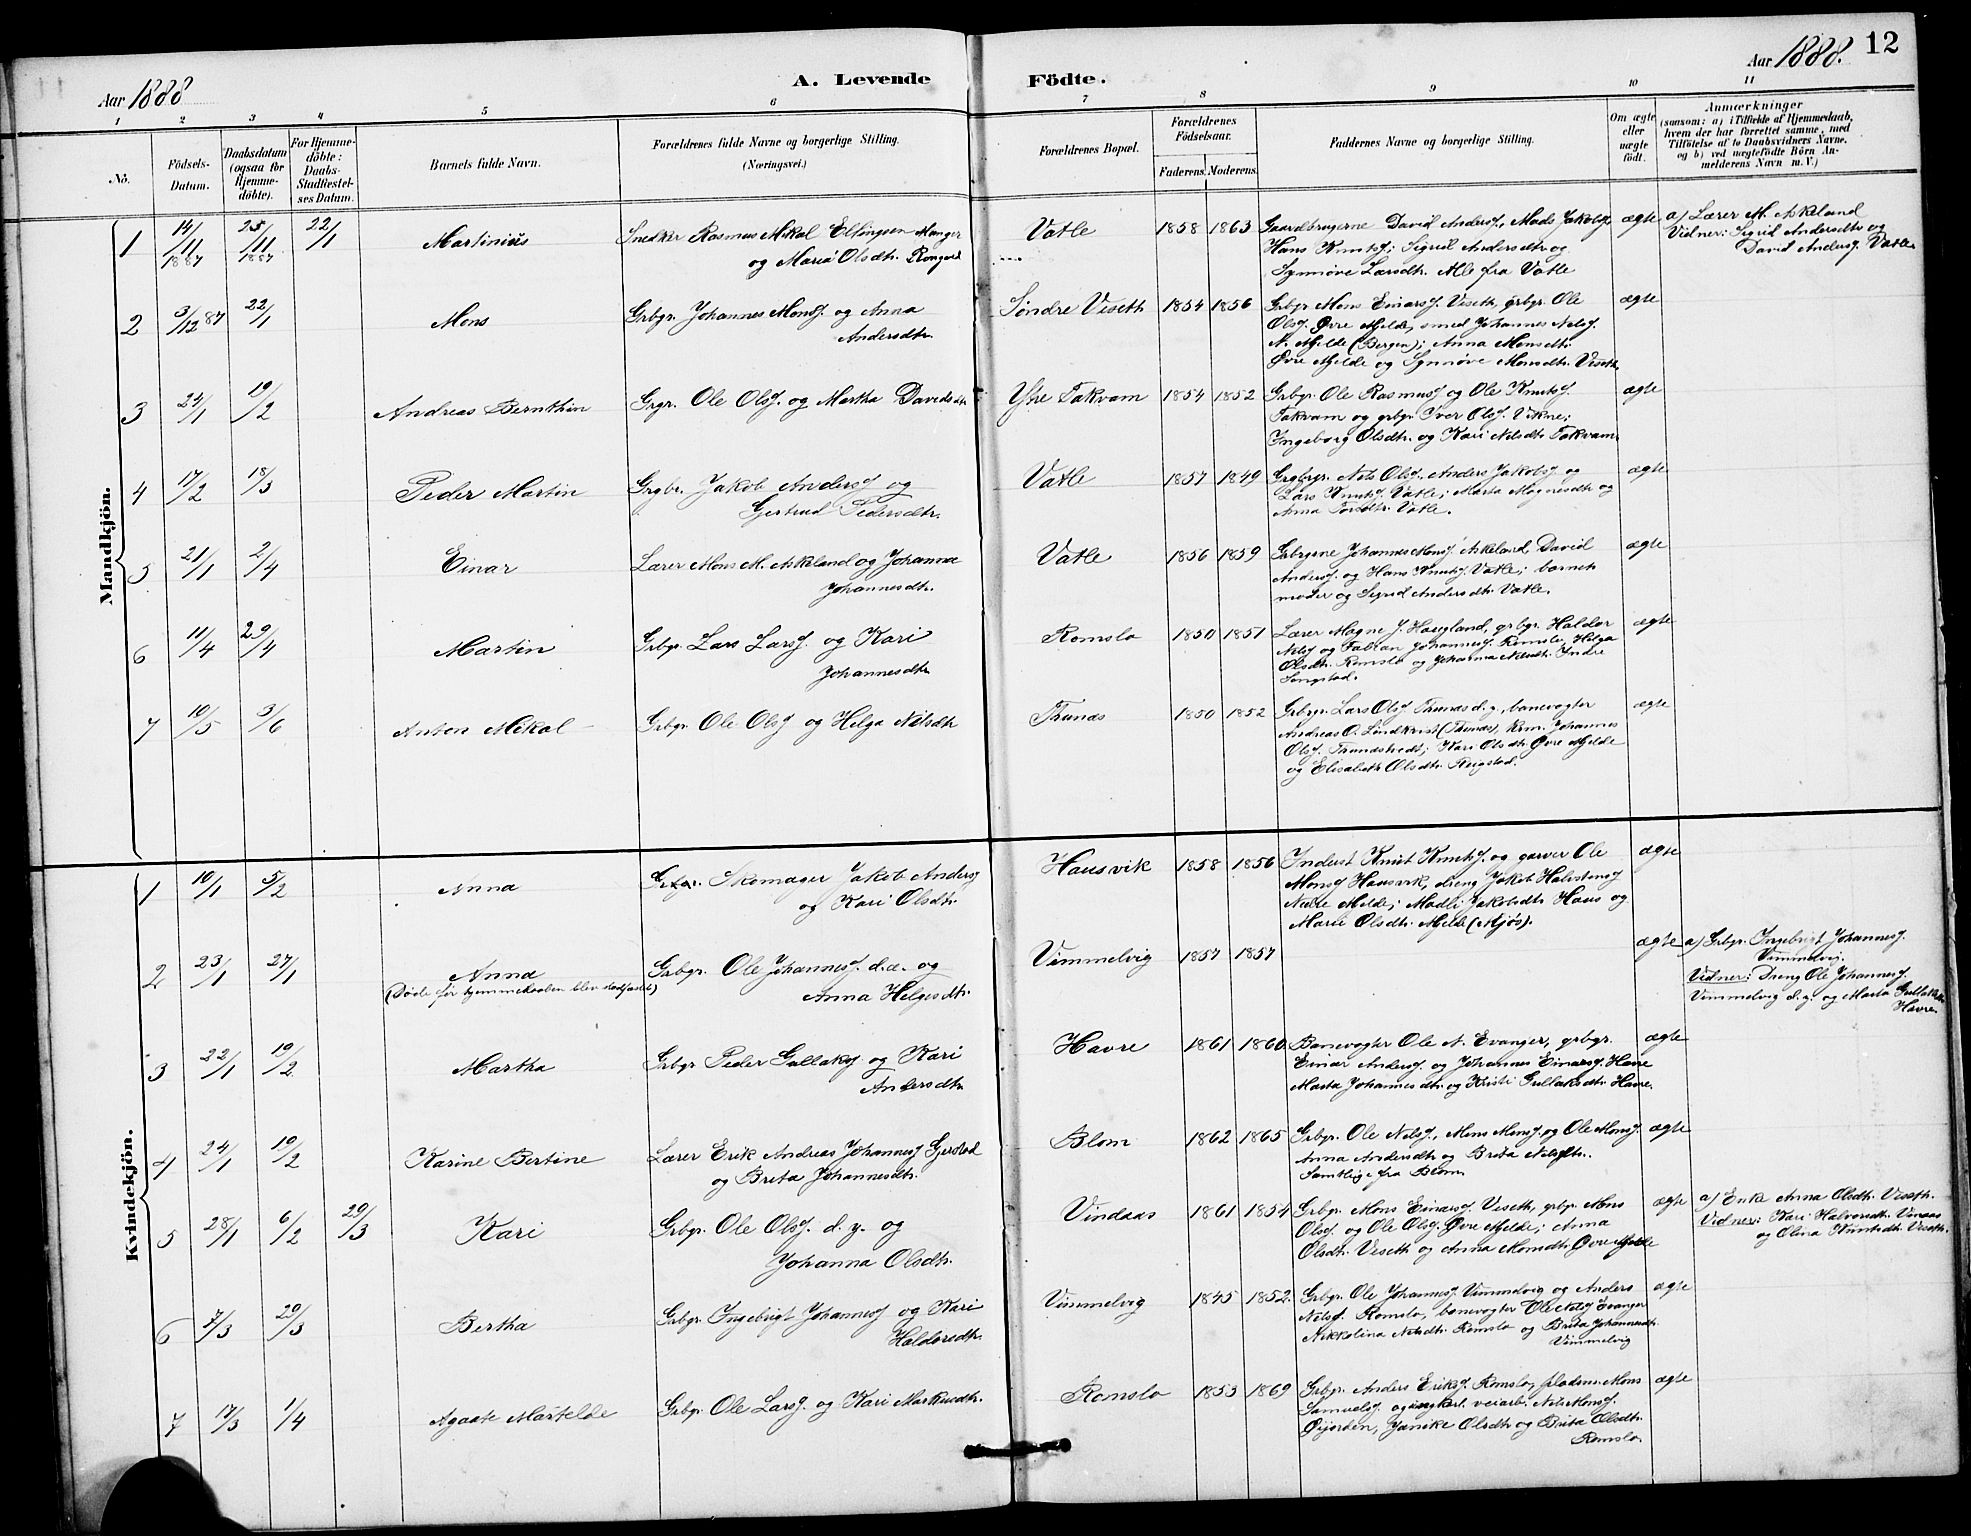 Aar 1888
A. Levende Födte.
Aar 1888. 12
1 2 3 4 5 6 7 8 9 10 11
No.
Födsels-Datum.
Daabsdatum (ogsaa for Hjemmedöbte).
For Hjemmedöbte: Daabs-Stadfæstelses Datum.
Barnets fulde Navn.
Forældrenes fulde Navne og borgerlige Stilling. (Næringsvei.)
Forældrenes Bopæl.
Forældrenes Födselsaar.
Faderens. Moderens.
Faddernes Navne og borgerlige Stilling.
Om ægte eller uægte födt.
Anmærkninger
(saasom: a) i Tilfælde af Hjemmedaab, hvem der har forrettet samme, med Tilföielse af to Daabsvidners Navne. og b) ved uægtefödte Börn Anmelderens Navn m. V.)
Mandkjön.
1 14/11 1887 25/11 1887 22/1 Martinius
Snedker Rasmus Mikal Ellingsen Manger
og Maria Olsdtr.
Vatle 1858 1863
Gaardbrugerne David Andersf., Mads Jakobsf.
Hans Knutsf.; Sigrid Andersdtr og
Synnöve Larsdtr. Alle fra Vatle
ægte
a) Lærer M. Askeland
Vidner: Sigrid Andersdtr og
David Andersf. Vatle
2 3/12 87 22/1 Mons
Grbgr. Johannes Monsf. og Anna
Andersdtr.
Söndre Viseth 1854 1856
Grbgr. Mons Einarsf. Viseth, grbgr. Ole
Olsf. Övre Mjelde, smed Johannes Nilsf.
N. Mjelde (Bergen); Anna Monsdtr.
Övre Mjelde og Synnöve Monsdtr. Viseth
ægte
3 24/1 19/2 Andreas Bernthin
Grgr. Ole Olsf. og Martha Davidsdtr
Ytre Takvam 1854 1852
Grbgr. Ole Rasmusf og Ole Knutsf.
Takvam og grbgr. Iver Olsf. Vikne;
Ingeborg Olsdtr. og Kari Nilsdtr Takvam.
ægte
4 17/2 18/3 Peder Martin
Grgbr. Jakob Andersf og
Gjertrud Pedersdtr.
Vatle 1857 1849
Grgbrgr. Nels Olsf., Anders Jakobsf og
Lars Knutsf. Vatle; Marta Magnesdtr og
Anna Vatle.
ægte
5 21/1 2/4 Einar
Lærer Mons M. Askeland og Johanna
Johannesdtr.
Vatle 1856 1859
Grbrgerne Johannes Monsf. Askeland, David
Andersf. og Hans Knutsf. Vatle; barnets
moder og Sigrid Andersdtr. Vatle.
ægte
6 11/4 29/4 Martin
Grbgr. Lars Larsf. og Kari
Johannesdtr
Romslo 1850 1851
Lærer Magne J. Haugland, grbgr. Haldor
Nilsf og Fabian Johannesf. Romslo, Helga
Olsdtr. Romslo og Johanna Nilsdtr. Indre
Songstad.
ægte
7 10/5 3/6 Anton Mikal
Grbgr. Ole Olsf og Helga Nilsdtr
Thunæs 1850 1852
Grbgr. Lars Olsf. Thunæs d.y., banevogter
Andreas O. Lindkvist (Thunæs), Johannes
Olsf. Kari Olsdtr. Övre Mjelde
og Elisabeth Olsdtr. Reigstad.
ægte
Kvindekjön.
1 10/1 5/2 Anna
Skomager Jakob Andersf
og Kari Olsdtr.
Hausvik 1858 1856
Inderst Knut Knutsf. og garver Ole
Monsf Hausvik, dreng Jakob Halstensf
Nedre Mjelde; Madli Jakobsdtr Haus og
Marie Olsdtr. Mjelde (Mjös).
ægte
2 23/1 27/1 Anna
(Döde för hjemmedaaben blev stadfæstet)
Grbgr. Ole Johannesf. d.æ. og
Anna Helgesdtr.
Vimmelvig 1857 1857
ægte
a) Grbgr. Ingebrigt Johannesf.
Vimmelvig.
Vidner: Dreng Ole Johannesf.
Vimmelvig d.y. og Marta
Havre
3 22/1 19/2 Martha
Grbgr Peder Gullaksf og Kari
Andersdtr
Havre 1861 1860
Banevogter Ole N. Evanger, grbgr.
Einar Andersf. og Johannes Einarsf. Havre
Marta Johannesdtr og Kristi Gullaksdtr. Havre.
ægte
4 24/1 19/2 Karine Bertine
Lærer Erik Andreas Johannesf Gjerstad
og Brita Johannesdtr.
Blom 1862 1865
Grbgr. Ole Nilsf., Mons Monsf og Ole Monsf.
Anna Andersdtr og Brita Nilsdtr.
Samtlige fra Blom.
ægte
5 28/1 6/2 29/3 Kari
Grbgr. Ole Olsf. d.y. og
Johanna Olsdtr.
Vindaas 1861 1854
Grbgr. Mons Einarsf. Viseth, grbgr. Mons
Olsf. og Ole Olsf. Övre Mjelde; Anna
Olsdtr. Viseth og Anna Monsdtr. Övre Mjelde
ægte
a) Enke Anna Olsdtr. Viseth.
Vidner: Kari Halvorsdtr. Vinaas
og Olina Knutsdtr. Viseth.
6 7/3 29/3 Bertha
Grbgr. Ingebrigt Johannesf og Kari
Haldorsdtr.
Vimmelvig 1845 1852.
Grbgr. Ole Johannesf Vimmelvig og Anders
Nilsf. Romslo, banevogter Ole Nilsf Evanger
Nikkolina Nilsdtr. Romslo og Brita Johannesdtr.
Vimmelvig
ægte
7 17/3 1/4 Agaate Martelde
Grbgr. Ole Larsf. og Kari Markusdtr.
Romslo 1853 1869
Grbgr. Anders Eriksf. Romslo, pladsm. Mons
Samuelsf. og veiarb. Nils Monsf.
Öijorden, Janike Olsdtr og Brita Olsdtr.
Romslo.
ægte